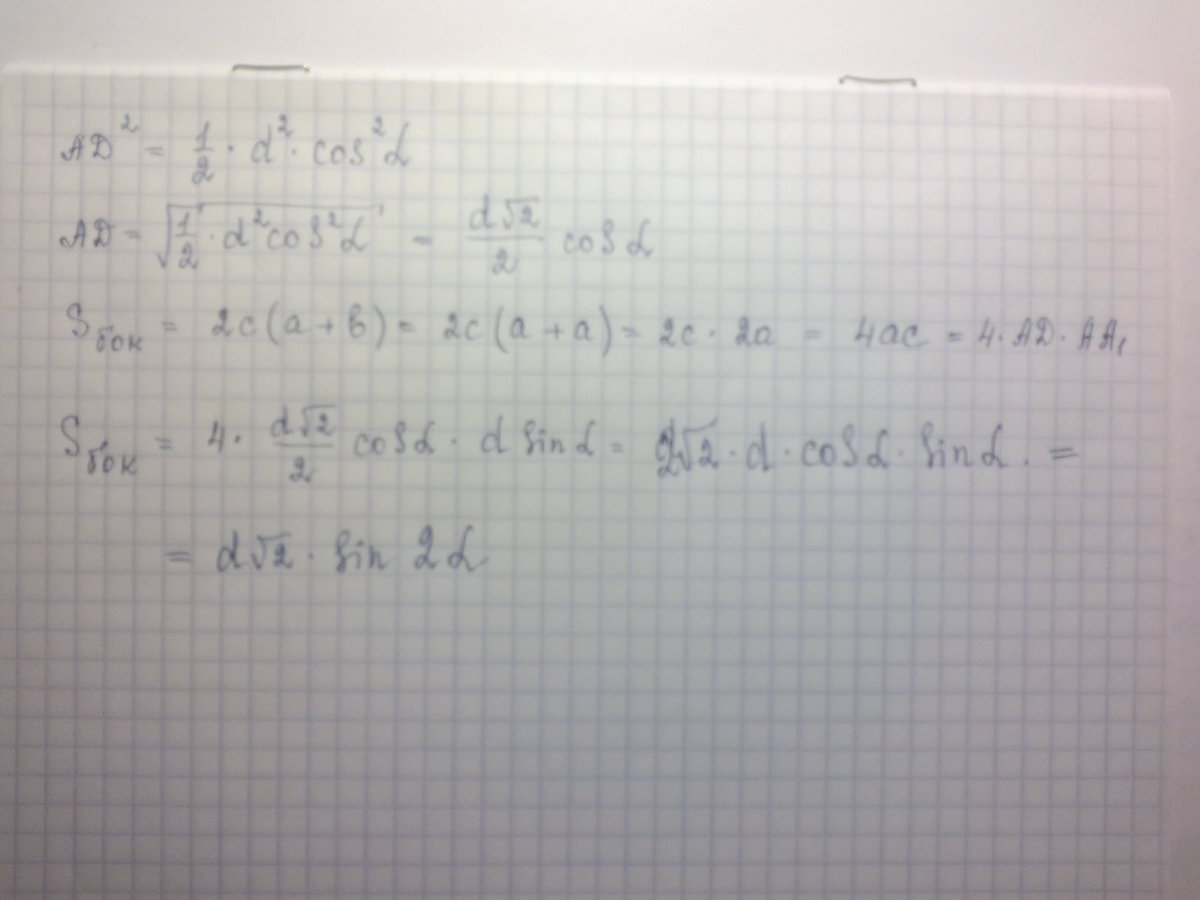 AD² = 1/2 · d² · cos²α
AD = √(1/2 · d²cos²α) = d√2/2 cosα
Sбок = 2c(a+b) = 2c(a+a) = 2c · 2a = 4ac = 4·AD·AA₁
Sбок = 4 · d√2/2 cosα · d sinα = 2√2 · d · cosα · sinα. =
= d√2 · sin 2α